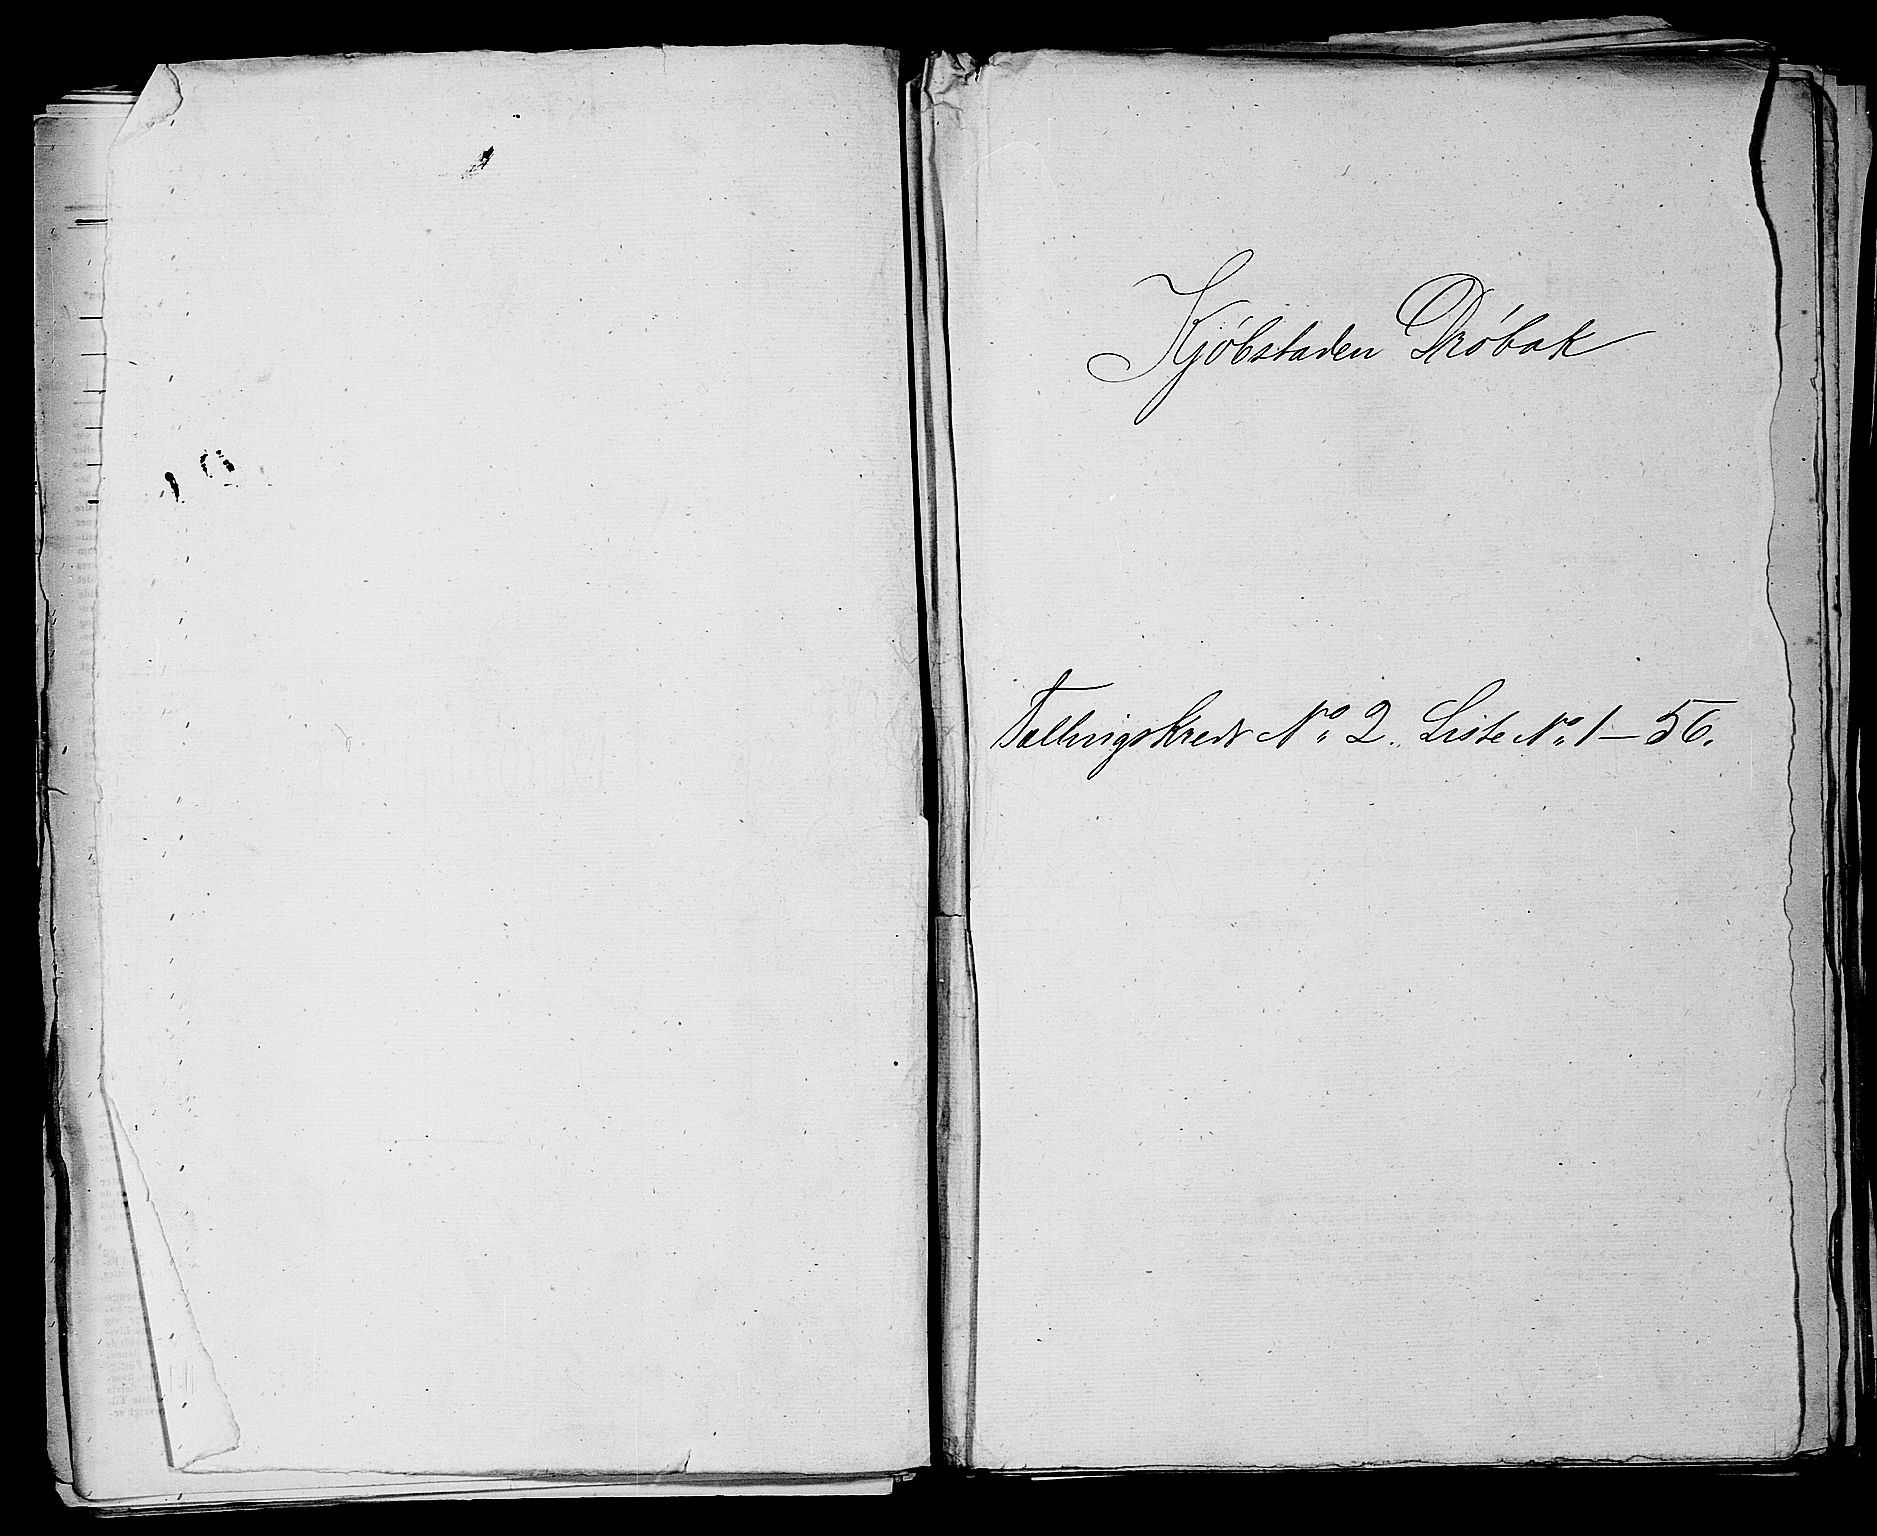 Kjóbstaden Dróbak
Tællingskreds No 2. Liste No 1 — 56.